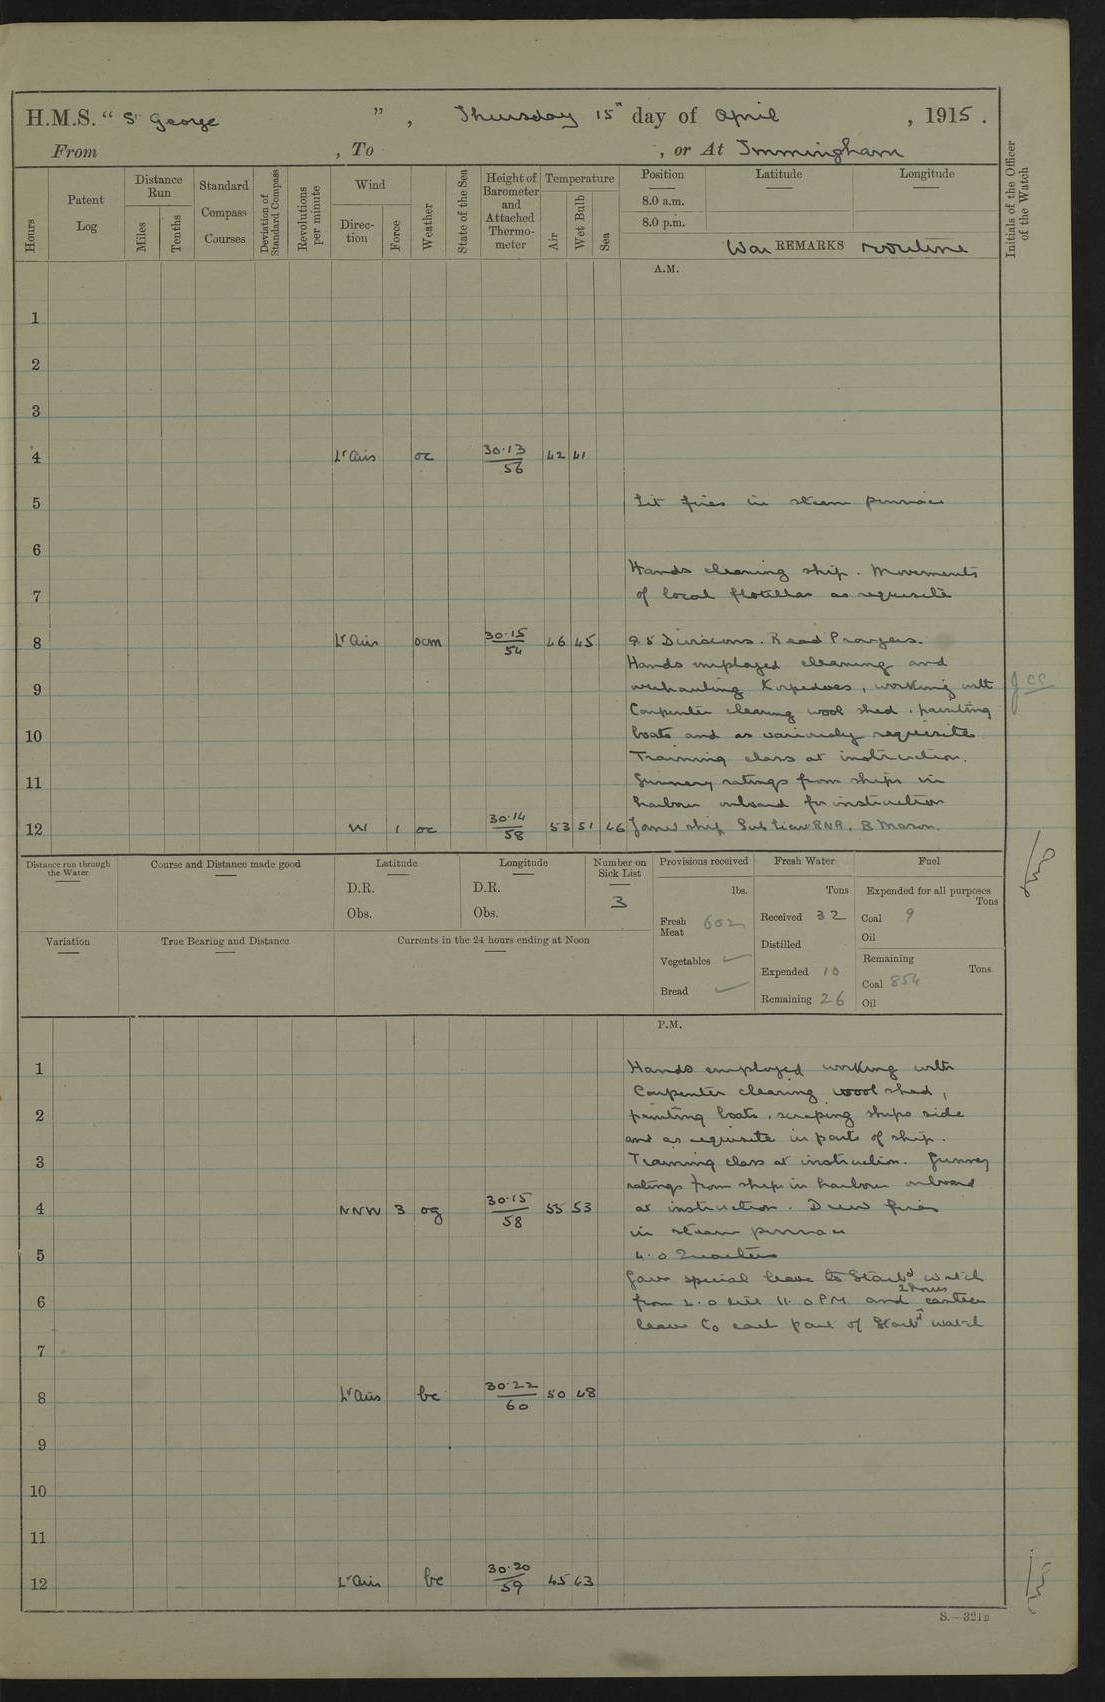 H.M.S. " St George ", Thursday 15th day of April, 1915.
From , To , or At Immingham
Hours
Patent Log
Distance Run
Miles
Tenths
Standard Compass Courses
Deviation of Standard Compass
Revolutions per minute
Wind
Direction
Force
Weather
State of the Sea
Height of Barometer and Attached Thermometer
Temperature
Air
Wet Bulb
Sea
Position
8.0 a.m.
8.0 p.m.
Latitude
Longitude
Initials of the Officer of the Watch
War REMARKS routine
A.M.
1
2
3
4 Lt Airs oc 30.13 56 42 41
5 Lit fires in steam pinnace
6
Hands cleaning ship. Movements
7 of local flotillas as requisite
8 Lt Airs ocm 30.15 54 46 45 9.5 Divisions. Read Prayers.
Hands employed cleaning and
9 overhauling torpedoes, working with
Carpenter clearing wool shed, painting
10 boats and as variously requisite
Training class at instruction.
11 Gunnery ratings from ships in
harbour onboard for instruction
12 W 1 oc 30.14 58 53 51 46 Joined ship Sub Lieut RNR. B Mason.
Distance run through the Water
Course and Distance made good
Latitude
D.R.
Obs.
Longitude
D.R.
Obs.
Number on Sick List
3
Provisions received
lbs.
Fresh Meat 602
Vegetables
Bread
Fresh Water
Tons
Received 32
Distilled
Expended 10
Remaining 26
Fuel
Expended for all purposes
Tons
Coal 9
Oil
Remaining
Tons
Coal 854
Oil
Variation
True Bearing and Distance
Currents in the 24 hours ending at Noon
P.M.
1 Hands employed working with
Carpenter clearing wool shed,
2 painting boats, scraping ships side
and as requisite in parts of ship.
3 Training class at instruction. Gunnery
ratings from ships in harbour onboard
4 NNW 3 og 30.15 58 55 53 at instruction. Drew fires
in steam pinnace
5 4.0 Quarters
Gave special leave to Starbd watch
6 from 2.0 till 11.0 PM and 2 hours canteen
leave to each part of Starbd watch
7
8 Lt Airs bc 30.22 60 50 48
9
10
11
12 Lt Airs bc 30.20 59 45 43
S.—321B